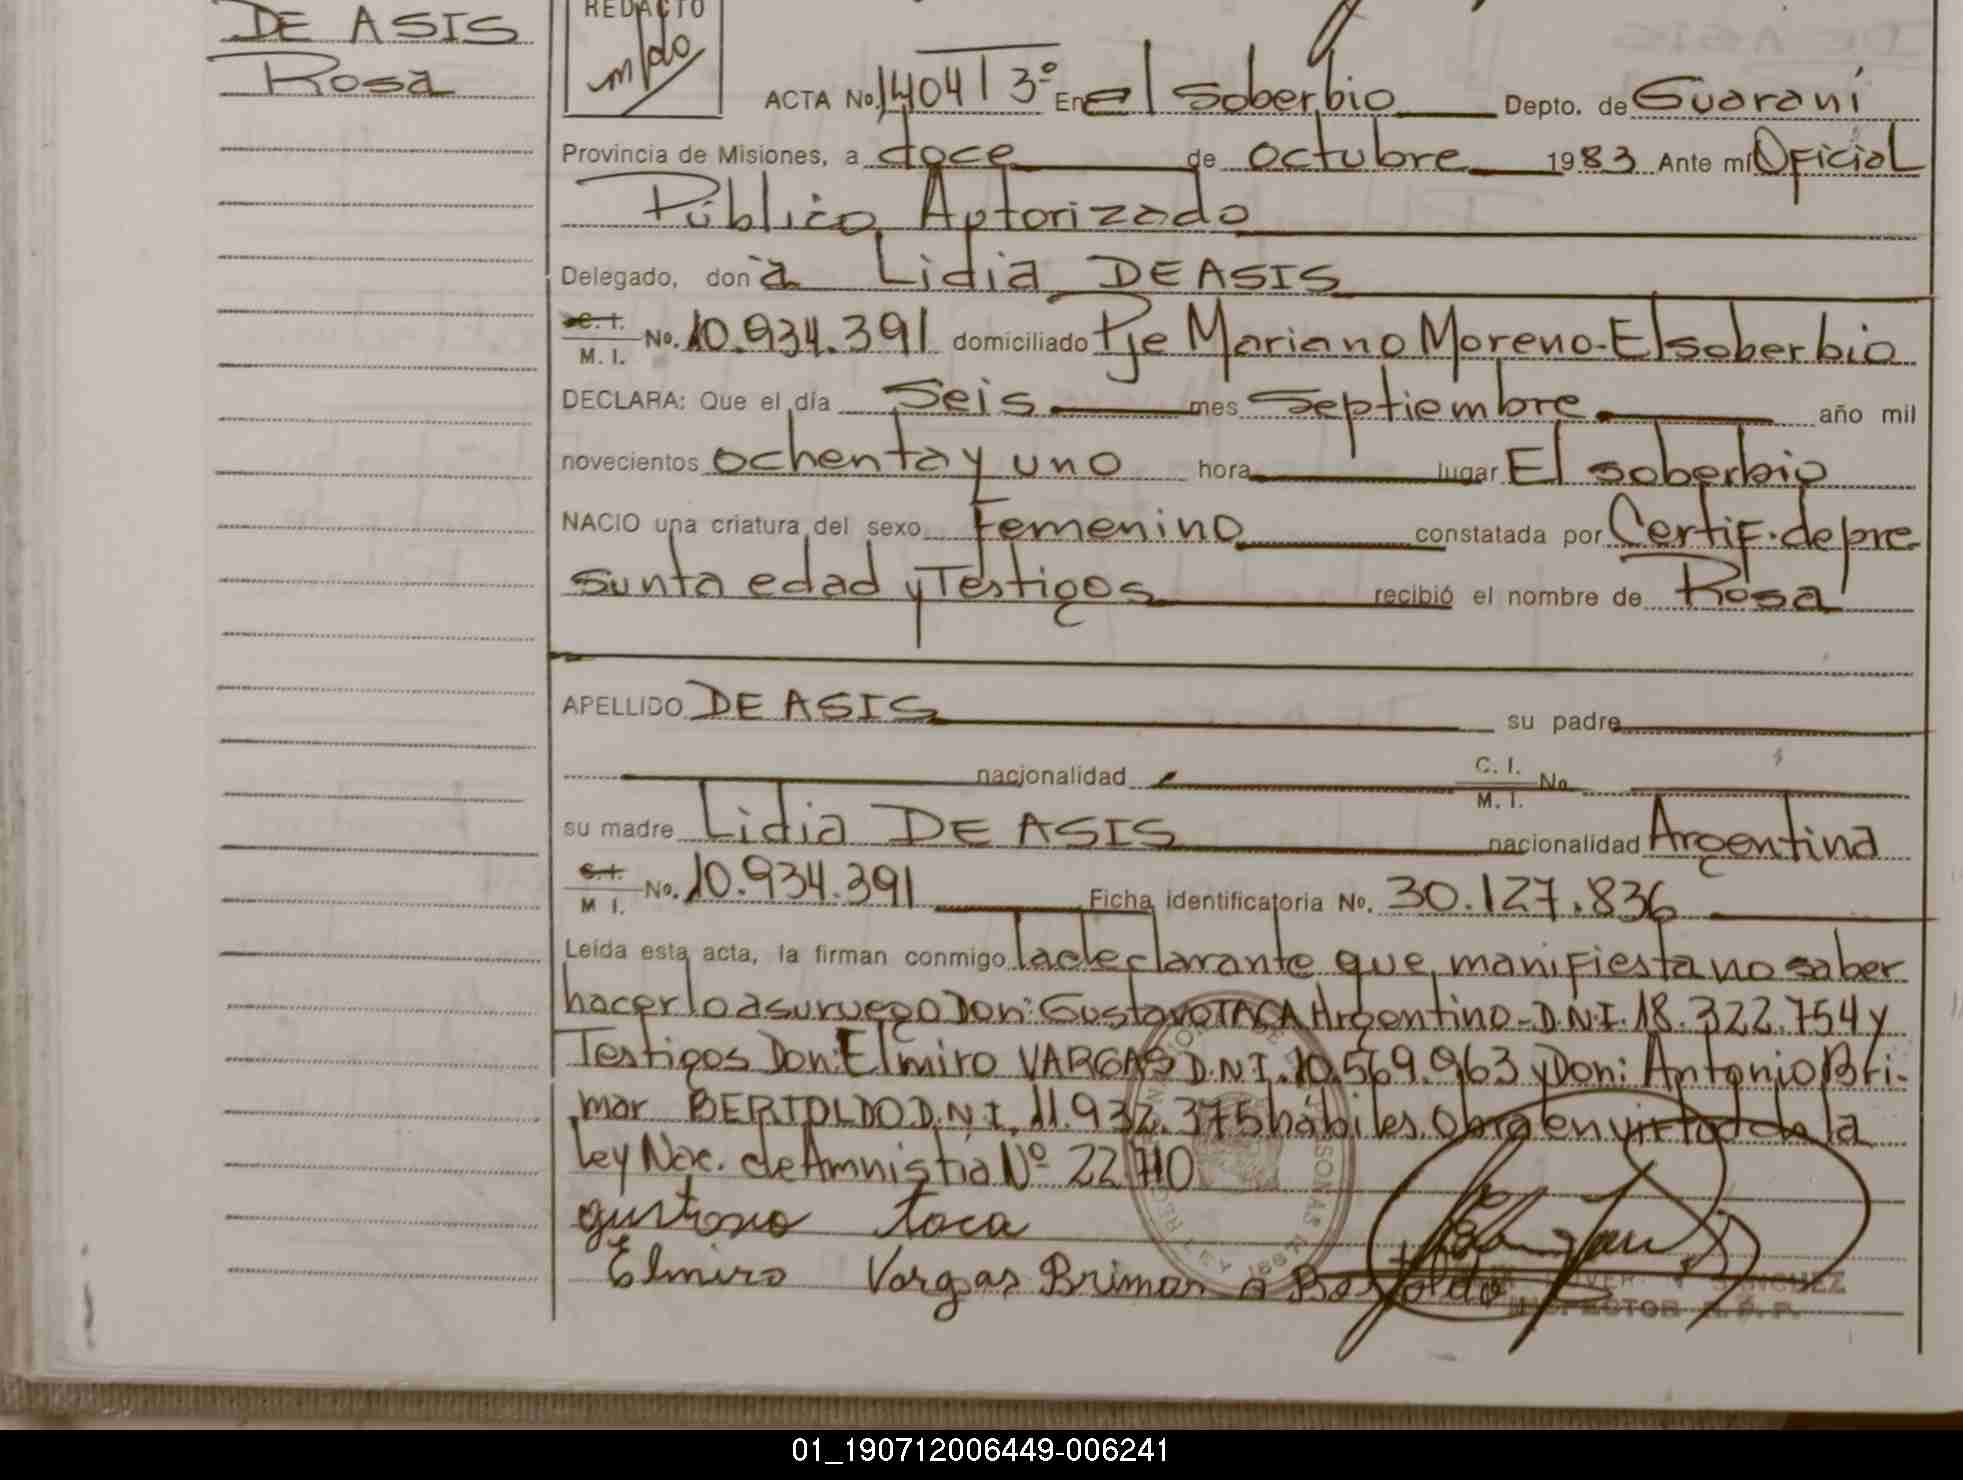 DE ASIS
Rosa
REDACTO
ACTA No. 1404 T 3º En el Soberbio Depto. de Guaraní
Provincia de Misiones, a doce de octubre 1983 Ante mí Oficial
Público Autorizado
Delegado, don a Lidia DE ASIS
C. I.
M. I. No. 10.934.391 domiciliado Pje Mariano Moreno - El soberbio
DECLARA: Que el día Seis mes Septiembre año mil
novecientos ochenta y uno hora lugar El soberbio
NACIO una criatura del sexo Femenino constatada por Certif. de pre
sunta edad y Testigos recibió el nombre de Rosa
APELLIDO DE ASIS su padre
nacionalidad C. I. No.
M. I.
su madre Lidia DE ASIS nacionalidad Argentina
C. I.
M I. No. 10.934.391 Ficha identificatoria No. 30.127.836
Leída esta acta, la firman conmigo la declarante que manifiesta no saber
hacerlo a su ruego Don: Gustavo TACA Argentino - D.N.I. 18.322.754 y
Testigos Don: Elmiro VARGAS D.N.I. 10.569.963 y Don: Antonio Bri-
mar BERTOLDO D.N.I. 11.932.375 hábiles. Obra en virtud de la
Ley Nac. de Amnistia Nº 22.710
gustavo taca
Elmiro Vargas Brimar A Bertoldo
INSPECTOR R.P.P.
01_190712006449-006241